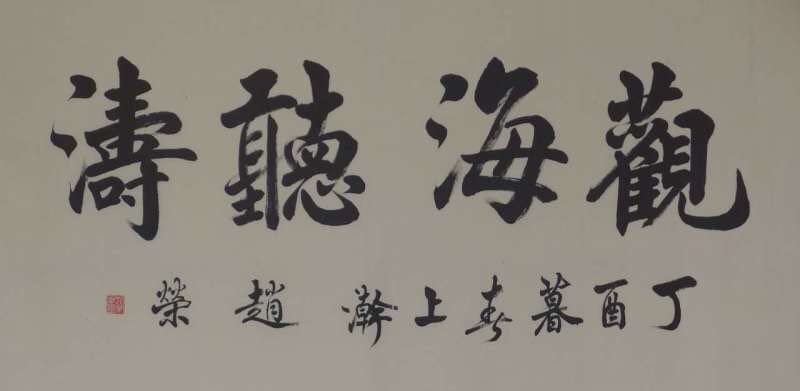 觀海聽濤
丁酉暮春上澣 趙榮